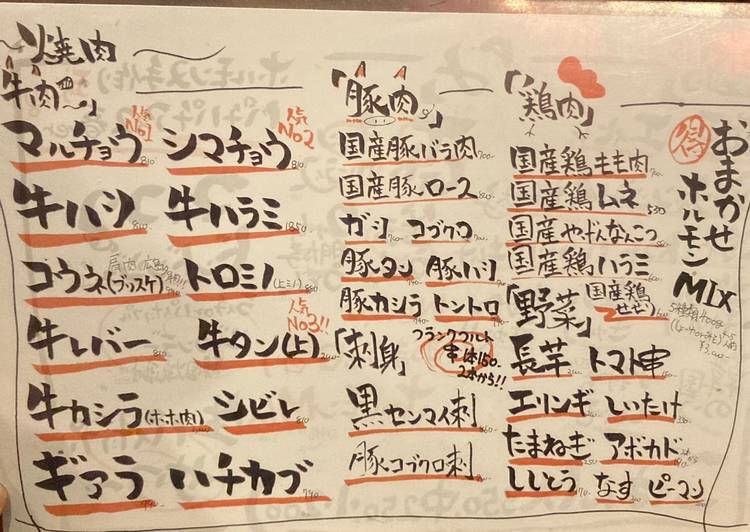 焼肉
「牛肉」
マルチョウ 810
人気No1
シマチョウ 810
人気No2
牛ハシ
牛ハラミ 1850
コウネ(ブリスケ)
トロミノ(上ミノ)
牛レバー 810
牛タン(上)
人気No3!!
牛カシラ(ホホ肉)
シビレ 810
ギアラ 790
ハチカブ 790
「豚肉」
国産豚バラ肉 700
国産豚ロース
ガシ
コブクロ
豚タン
豚ハシ
豚カシラ
トントロ
フランクフルト
1本150
2本から!!
「刺身」
黒センマイ刺
豚コブクロ刺
「鶏肉」
国産鶏もも肉
国産鶏ムネ 530
国産やげんなんこつ
国産鶏ハラミ
国産鶏せせり
「野菜」
長芋
トマト串
エリンギ
しいたけ
たまねぎ
アボカド
ししとう
なす
ピーマン
得
おまかせ
ホルモンMIX